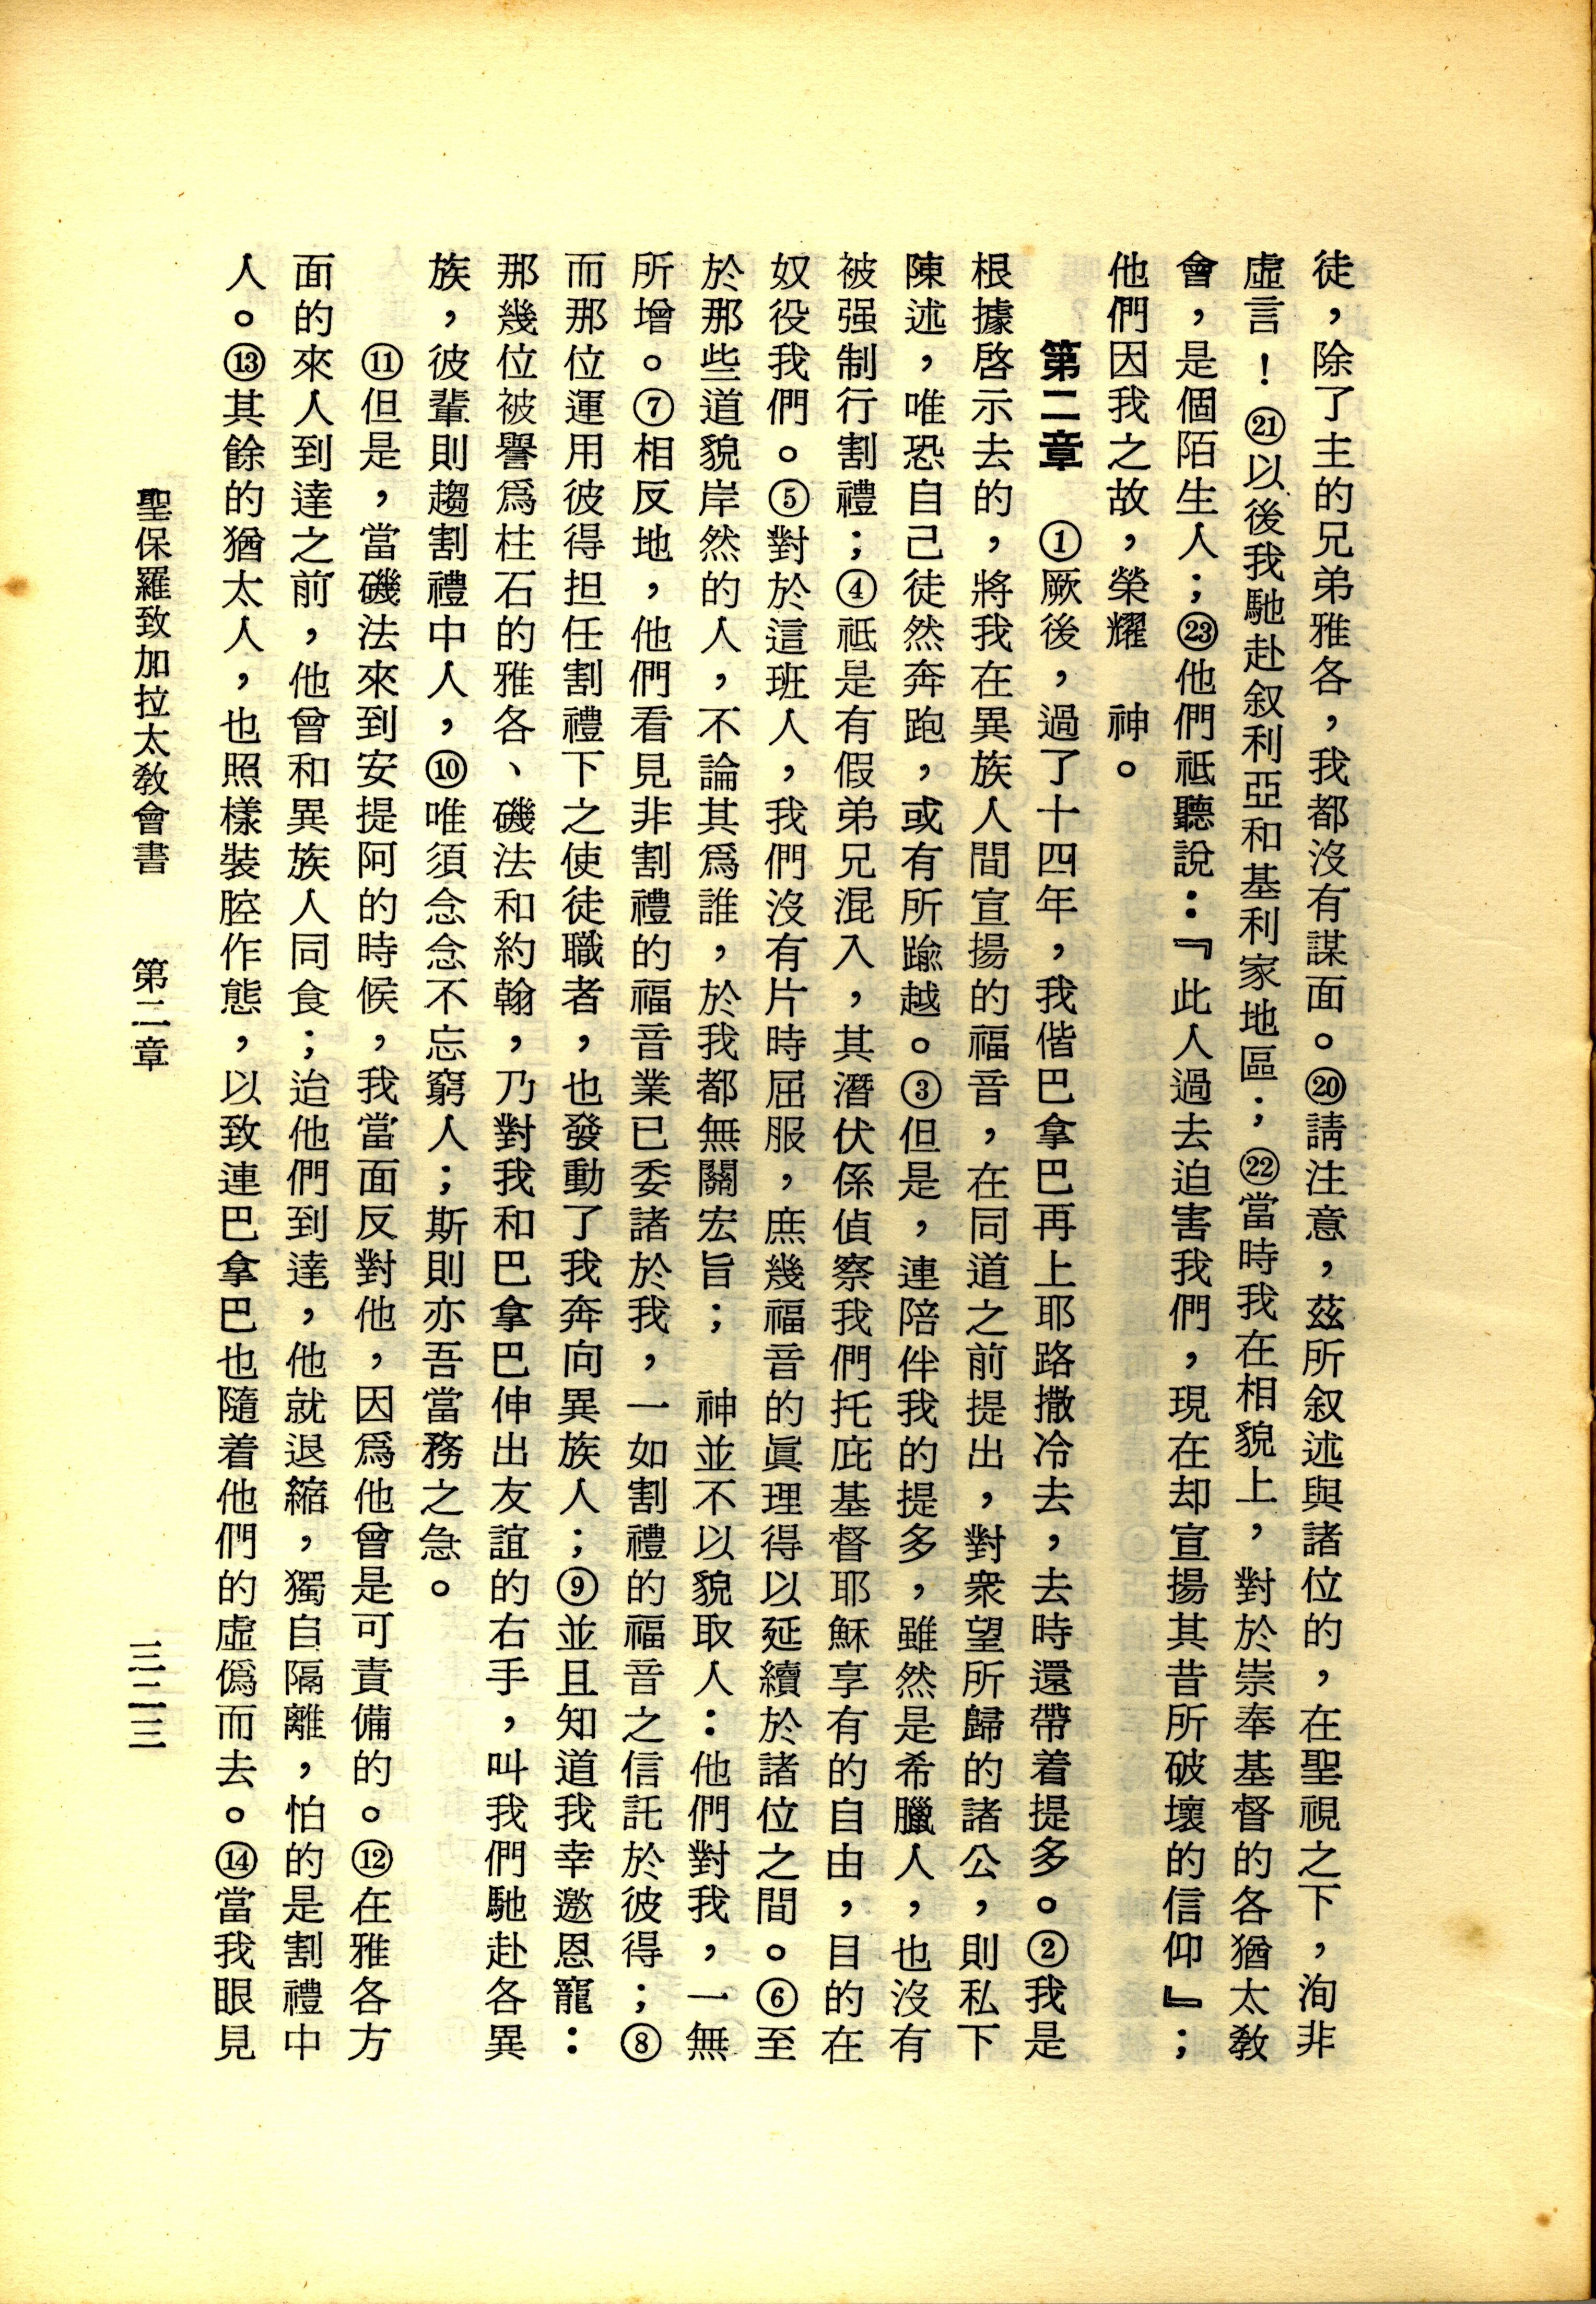 徒，除了主的兄弟雅各，我都沒有謀面。⑳請注意，茲所叙述與諸位的，在聖視之下，洵非
虛言！㉑以後我馳赴叙利亞和基利家地區；㉒當時我在相貌上，對於崇奉基督的各猶太教
會，是個陌生人；㉓他們祗聽說：『此人過去迫害我們，現在却宣揚其昔所破壞的信仰』；
他們因我之故，榮耀　神。
第二章　①厥後，過了十四年，我偕巴拿巴再上耶路撒冷去，去時還帶着提多。②我是
根據啓示去的，將我在異族人間宣揚的福音，在同道之前提出，對衆望所歸的諸公，則私下
陳述，唯恐自己徒然奔跑，或有所踰越。③但是，連陪伴我的提多，雖然是希臘人，也沒有
被强制行割禮；④祗是有假弟兄混入，其潛伏係偵察我們托庇基督耶穌享有的自由，目的在
奴役我們。⑤對於這班人，我們沒有片時屈服，庶幾福音的眞理得以延續於諸位之間。⑥至
於那些道貌岸然的人，不論其爲誰，於我都無關宏旨；　神並不以貌取人：他們對我，一無
所增。⑦相反地，他們看見非割禮的福音業已委諸於我，一如割禮的福音之信託於彼得；⑧
而那位運用彼得担任割禮下之使徒職者，也發動了我奔向異族人；⑨並且知道我幸邀恩寵：
那幾位被譽爲柱石的雅各、磯法和約翰，乃對我和巴拿巴伸出友誼的右手，叫我們馳赴各異
族，彼輩則趨割禮中人，⑩唯須念念不忘窮人；斯則亦吾當務之急。
⑪但是，當磯法來到安提阿的時候，我當面反對他，因爲他曾是可責備的。⑫在雅各方
面的來人到達之前，他曾和異族人同食；迨他們到達，他就退縮，獨自隔離，怕的是割禮中
人。⑬其餘的猶太人，也照樣裝腔作態，以致連巴拿巴也隨着他們的虛僞而去。⑭當我眼見
聖保羅致加拉太教會書　第二章　三二三